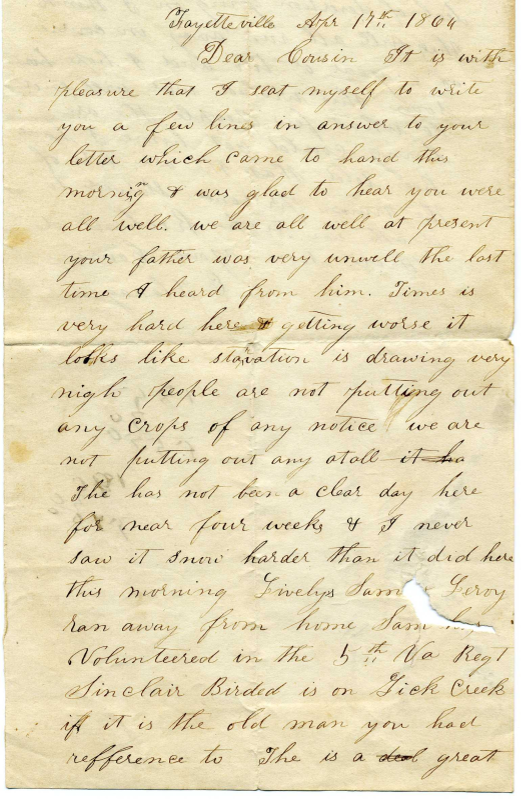 Fayetteville Apr 17th 1864
Dear Cousin It is with
pleasure that I seat myself to write
you a few lines in answer to your
letter which came to hand this
morning & was glad to hear you were
all well. we are all well at present
your father was very unwell the last
time I heard from him. Times is
very hard here & getting worse it
looks like starvation is drawing very
nigh people are not putting out
any crops of any notice we are
not putting out any atall it ha
The has not been a clear day here
for near four weeks & I never
saw it snow harder than it did here
this morning Livelys Sam Leroy
ran away from home Sam
Volunteered in the 5th Va Regt
Sinclair Birded is on Lick Creek
if it is the old man you had
refference to The is a deal great